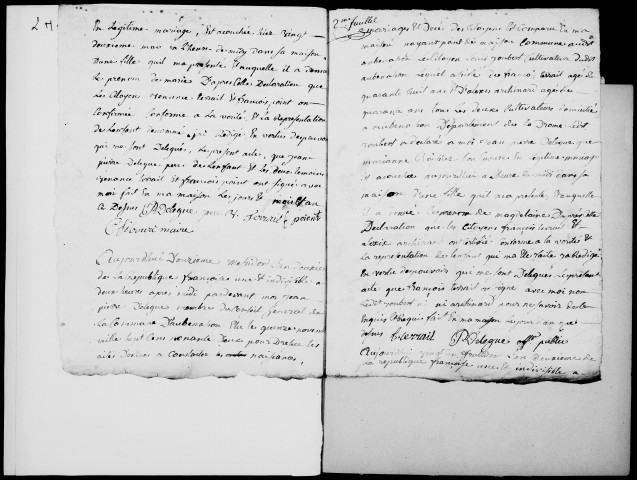 En Legitime mariage, Est accouchée hier vingt
deuxieme mai a l'heure de midy dans sa maison
D'une fille quil ma presenté Et auquelle il a donné
Le prenom de marie D'apres cette Declaration que
Les Citoyens venance terrail Et francois point ont
Confirmée Conforme a La verité Et La representation
De Lenfant Redigé En vertu des pouvoirs
qui me sont Delegués, Le present acte, que jean
pierre Delegue pere de Lenfant Et les deux temoins
venance terrail Et francois point ont signé avec
moi fait En ma maison Les jours Et mois Et an
ci Dessus Delegue pere V. Terrail f. point
maire
Aujourdhui Douzieme messidor L'an deuxieme
de La republique francoise une Et indivisible a
deux heures apres midi pardevant moy jean
pierre Delegue membre du Conseil general de
La Commune D'aubenasson Elu le quinze novembre
mille sept Cens nonante Deux pour Dresser les
actes Destinés a Constater les naissances,
2me feuillet
mariages Et Decé Des Citoyens Est Comparu En ma
maison nayant point de maison Commune audit
aubenasson Le Citoyen Louis joubert Cultivateur dudit
aubenasson Lequel assisté de francois terrail agé de
quarante huit ans Et D'alexis archinard agé de
quarante ans tous Les deux Cultivateurs domicilié
a aubenasson Departement de La Drome Ledit
joubert a declaré a moi jean pierre Delegue que
marianne Son Epouse En legitime mariage
Est accouchée aujourdhui a Lheure de midi dans sa
maison d'une fille quil ma presenté Et auquelle
il a donné Le prenom de magdelaine D'apres cette
Declaration que les Citoyens francois terrail Et
alexis archinard ont Certifié Conforme a La verité Et
La representation de Lenfant qui ma Eté faite jai Redigé
En vertu des pouvoirs qui me sont Delegués Le present
acte que francois terrail a signé avec moi non
Ledit joubert ni archinard pour ne savoir de Ce
Enquis Et Requis fait En ma maison Le jour mois an que
dessus f terrail Delegue off. public
Aujourdhui vingt un fructidor L'an Deuxieme de
La republique francoise une Et indivisible a